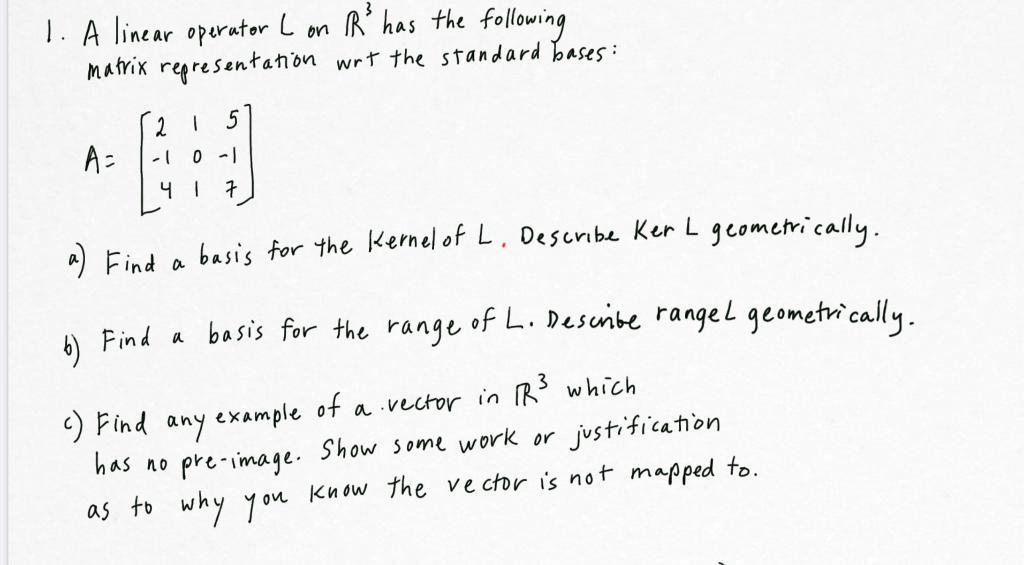 1. A linear operator L on ℝ³ has the following
matrix representation wrt the standard bases:
2 1 5
A= -1 0 -1
4 1 7
a) Find a basis for the Kernel of L. Describe Ker L geometrically.
b) Find a basis for the range of L. Describe rangeL geometrically.
c) Find any example of a vector in ℝ³ which
has no pre-image. Show some work or justification
as to why you know the vector is not mapped to.